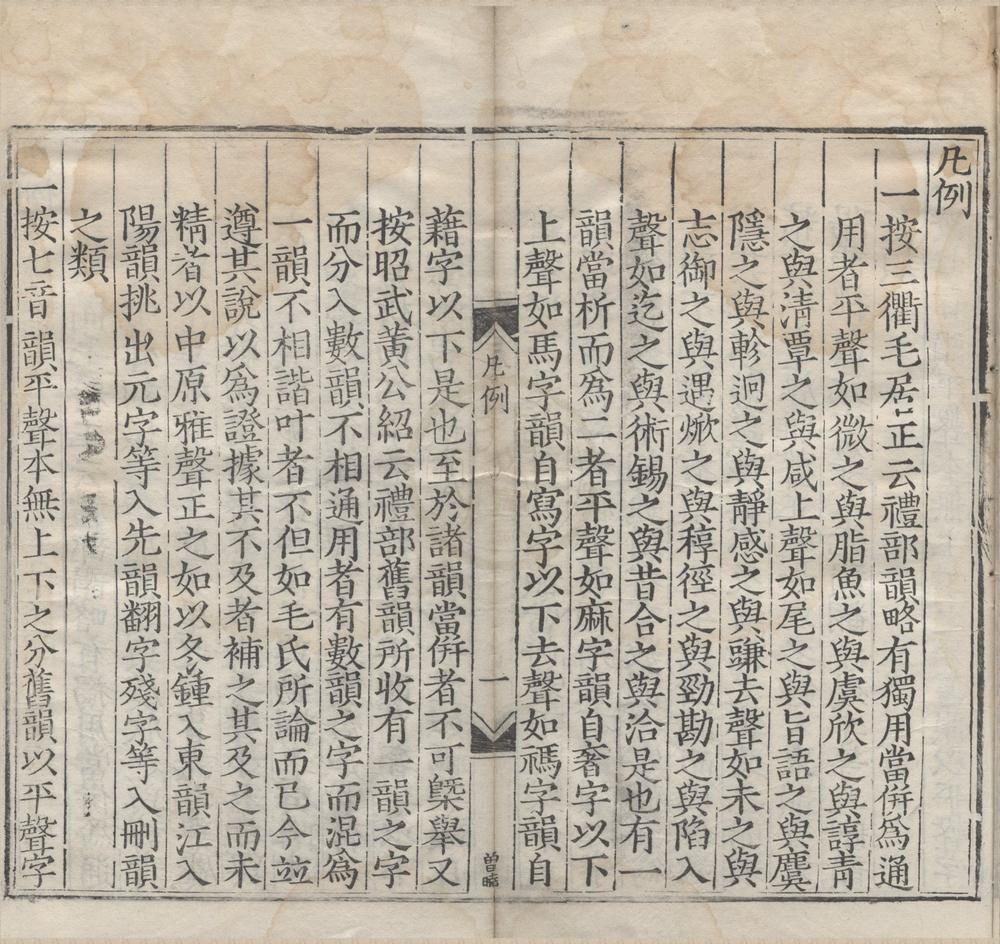 凡例
一按三衢毛居正云禮部韻略有獨用當併爲通
用者平聲如微之與脂魚之與虞欣之與諄青
之與清覃之與咸上聲如尾之與旨語之與麌
隱之與軫迥之與靜感之與豏去聲如未之與
志御之與遇焮之與稕徑之與勁勘之與陷入
聲如迄之與術錫之與昔合之與洽是也有一
韻當析而爲二者平聲如麻字韻自奢字以下
上聲如馬字韻自寫字以下去聲如禡字韻自
凡例
一
曾曉
藉字以下是也至於諸韻當併者不可槩舉又
按昭武黃公紹云禮部舊韻所收有一韻之字
而分入數韻不相通用者有數韻之字而混爲
一韻不相諧叶者不但如毛氏所論而已今竝
遵其說以爲證據其不及者補之其及之而未
精者以中原雅聲正之如以冬鍾入東韻江入
陽韻挑出元字等入先韻翻字殘字等入刪韻
之類
一按七音韻平聲本無上下之分舊韻以平聲字